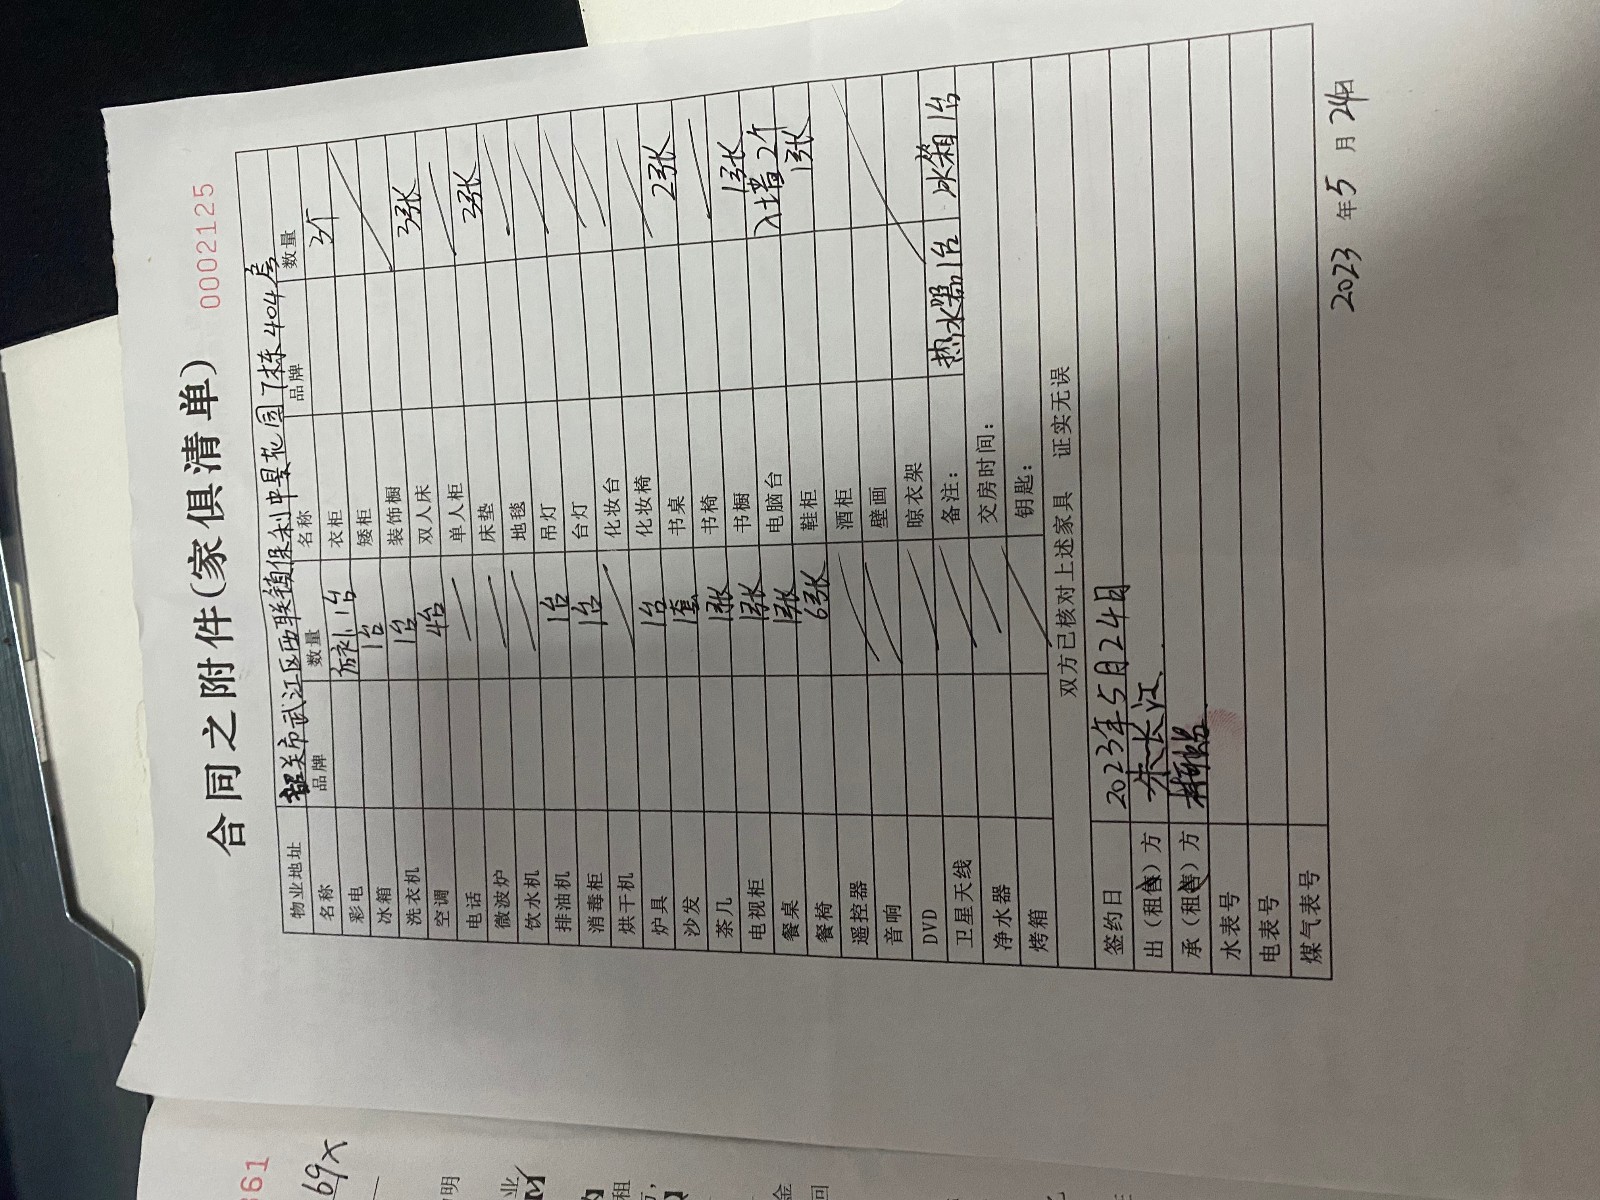 合同之附件(家俱清单)
0002125
物业地址 韶关市武江区西联镇保利中景花园7栋404房
名称 品牌 数量 名称 品牌 数量
彩电 1台 衣柜 3个
冰箱 1台 矮柜
洗衣机 1台 装饰橱
空调 4台 双人床 3张
电话 单人柜
微波炉 床垫 3张
饮水机 地毯
排油机 1台 吊灯
消毒柜 1台 台灯
烘干机 化妆台
炉具 1台 化妆椅
沙发 1套 书桌 2张
茶几 1张 书椅
电视柜 1张 书橱 1张
餐桌 1张 电脑台 入墙2个
餐椅 6张 鞋柜 1张
遥控器 酒柜
音响 壁画
DVD 晾衣架
卫星天线 备注: 热水器1台 冰箱1台
净水器 交房时间:
烤箱 钥匙:
双方已核对上述家具 证实无误
签约日 2023年5月24日
出(租售)方 朱长江
承(租售)方
水表号
电表号
煤气表号
2023年5月24日
361
69X
明
业
租
金
回